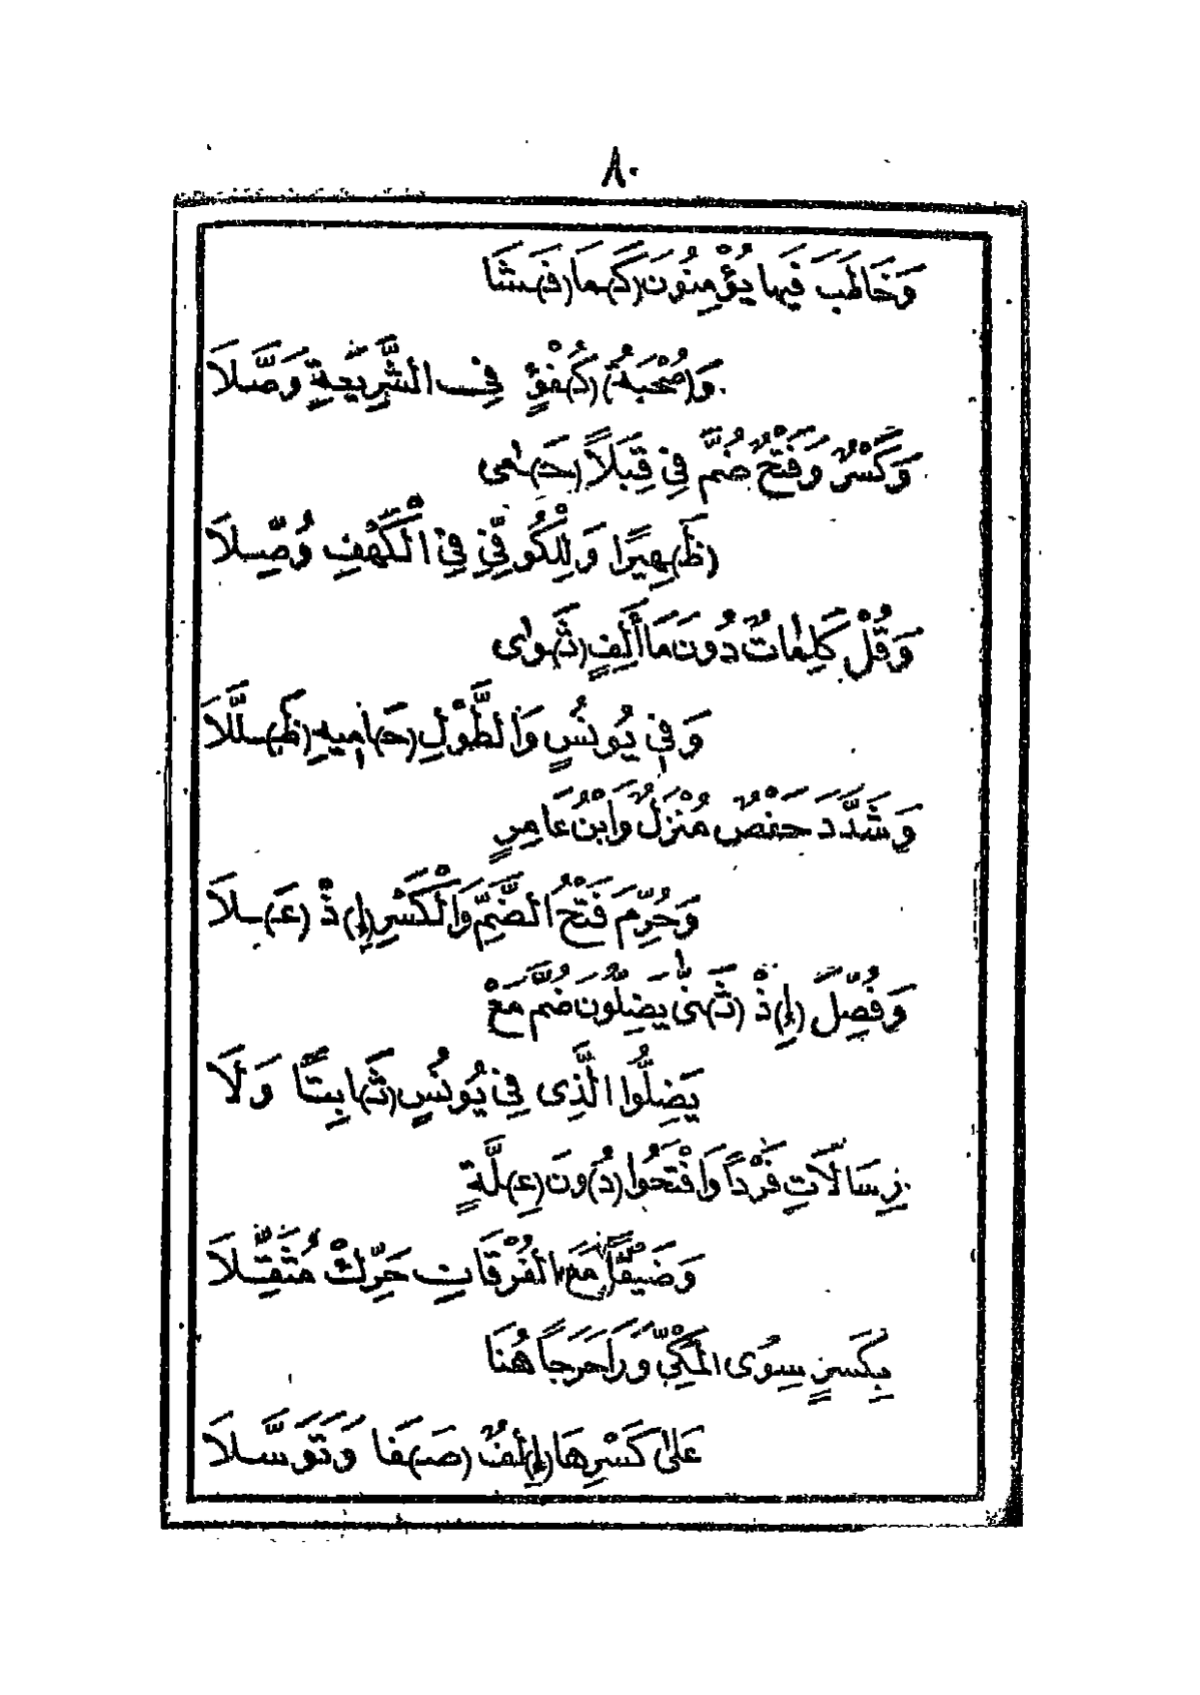 ٨٠
وَخَاطَبَ فِيهَا يُؤْمِنُونَ (كَـ)ـمَا (فَـ)ـشَا
وَ(صُحْبَةُ) (كُـ)ـفْؤٍ فِي الشَّرِيعَةِ وَصَّلَا
وَكَسْرٌ وَفَتْحٌ ضُمَّ فِي قِبَلاً (حَـ)ـمَى
(ظَـ)ـهِيرًا وَلِلْكُوفِيِّ فِي الْكَهْفِ وُصِّلَا
وَقُلْ كَلِمَاتٌ دُونَ مَا أَلِفٍ (ثَـ)ـوَى
وَفِي يُونُسٍ وَالطَّوْلِ (حَـ)ـامِيهِ (ظَـ)ـلَّلَا
وَشَدَّدَ حَفْصٌ مُنْزَلٌ وَابْنُ عَامِرٍ
وَحُرِّمَ فَتْحُ الضَّمِّ وَالْكَسْرِ (إِ)ذْ (عَـ)ـلَا
وَفُصِّلَ (إِ)ذْ (ثَـ)ـنَّى يَضِلُّونَ ضُمَّ مَعْ
يَضِلُّوا الَّذِى فِي يُونُسٍ (ثَـ)ـابِتًا وَلَا
رِسَالَاتِ فَرْدًا وَافْتَحُوا (دُ)ونَ (عِـ)ـلَّةٍ
وَضَيْقًا مَعَ الْفُرْقَانِ حَرِّكْ مُثَقِّلَا
بِكَسْرٍ سِوَى الْمَكِّيِّ وَرَا حَرَجًا هُنَا
عَلَى كَسْرِهَا (إِ)لْفٌ (صَـ)ـفَا وَتَوَسَّلَا